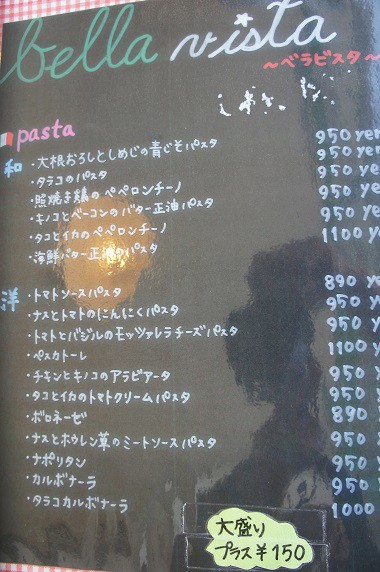 bella vista
~ベラビスタ~
pasta
和
・大根おろしとしめじの青じそパスタ 950 yen
・タラコのパスタ 950 yen
・照焼き鶏のペペロンチーノ 950 ye
・キノコとベーコンのバター正油パスタ 950 ye
・タコとイカのペペロンチーノ 950 ye
・海鮮バター正油のパスタ 1100 ye
洋
・トマトソースパスタ 890 ye
・ナスとトマトのにんにくパスタ 950 ye
・トマトとバジルのモッツァレラチーズパスタ 950 ye
・ペスカトーレ 1100 ye
・チキンとキノコのアラビアータ 950 y
・タコとイカのトマトクリームパスタ 950 y
・ボロネーゼ 890
・ナスとホウレン草のミートソースパスタ 950
・ナポリタン 950
・カルボナーラ 950
・タラコカルボナーラ 1000
大盛り
プラス¥150